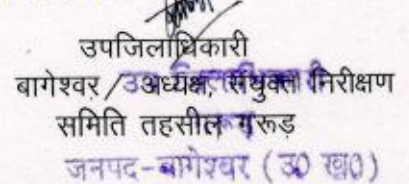 उपजिलाधिकारी
बागेश्वर/अध्यक्ष, संयुक्त निरीक्षण
समिति तहसील गरूड़
जनपद-बागेश्वर (उ0 ख0)